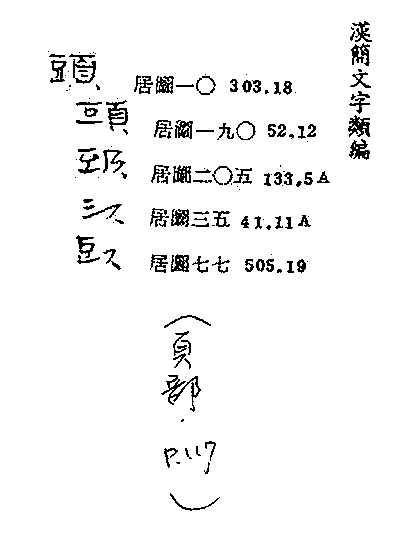 漢簡文字類編
頭 居圖一〇 303.18
頭 居圖一九〇 52.12
頭 居圖二〇五 133.5A
居圖三五 41.11A
居圖七七 505.19
(頁部.P.117)